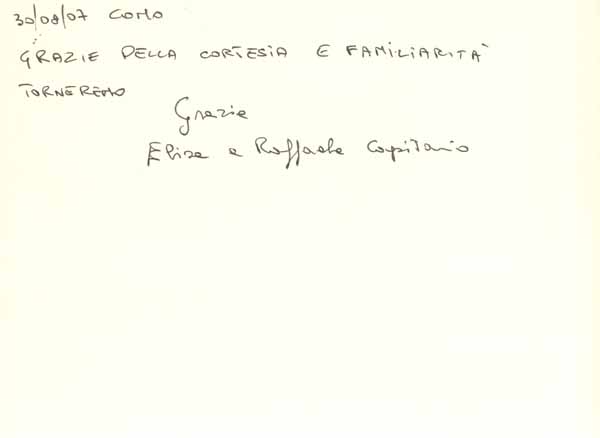 30/08/07 COMO
GRAZIE DELLA CORTESIA E FAMILIARITÀ
TORNEREMO
Grazie
Elisa e Raffaele Capitanio